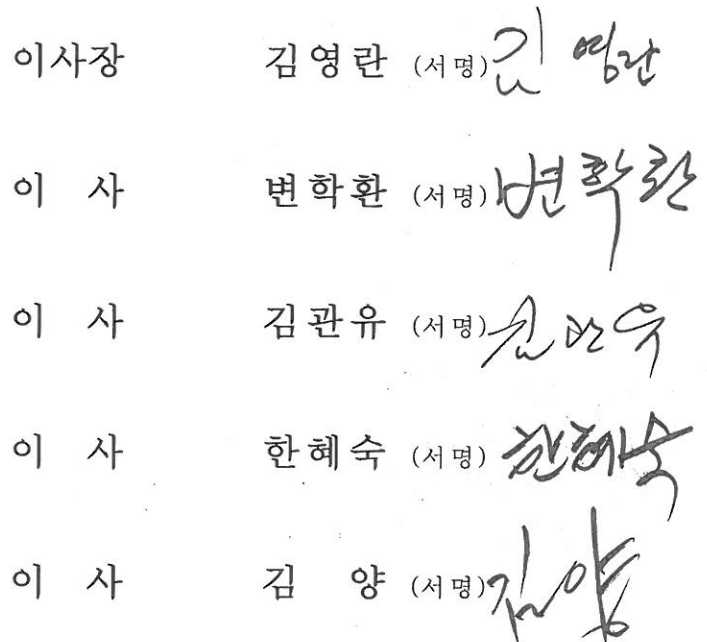 이사장 김영란 (서명) 김영란
이 사 변학환 (서명) 변학환
이 사 김관유 (서명) 김관유
이 사 한혜숙 (서명) 한혜숙
이 사 김 양 (서명) 김양